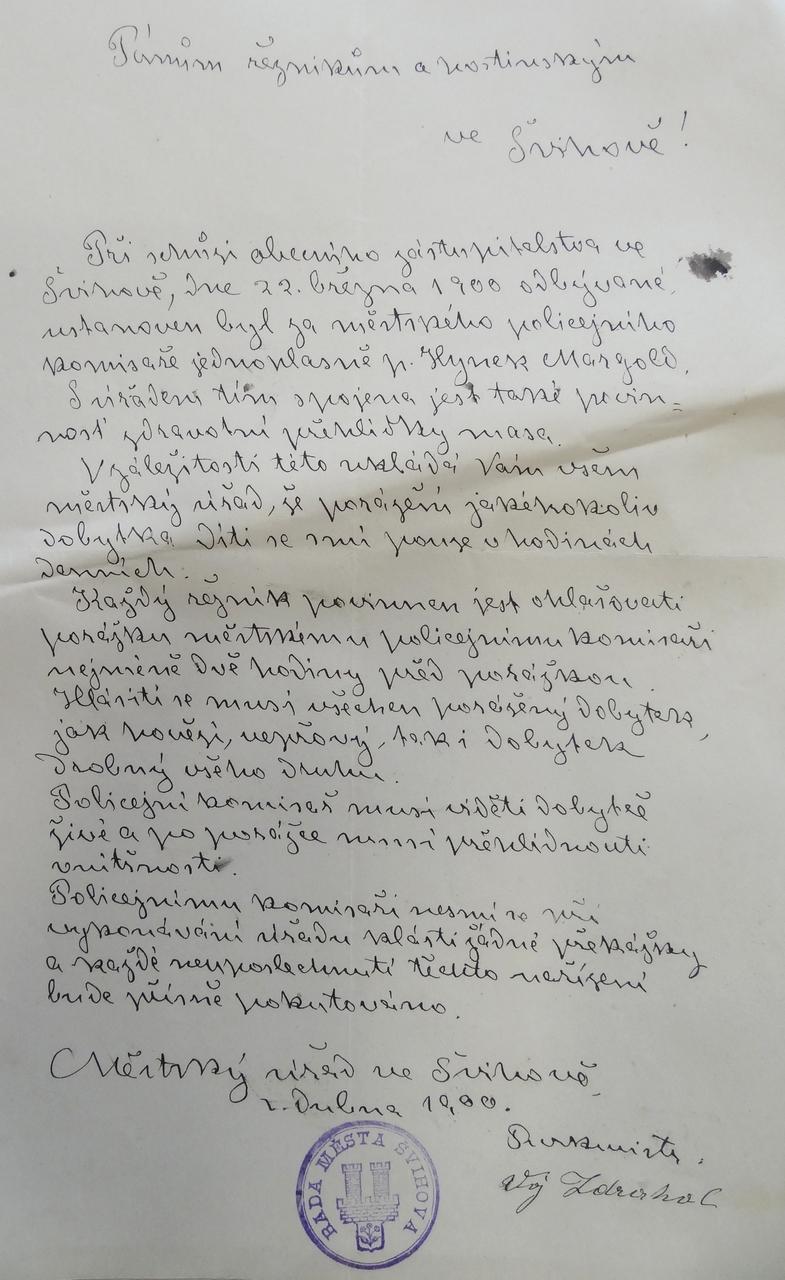 Pánům řezníkům a hostinským
ve Švihově!
Při schůzi obecního zástupitelstva ve
Švihově, dne 22. března 1900 odbývané,
ustanoven byl za městského policejního
komisaře jednohlasně p. Hynek Margold.
S úřadem tím spojena jest také povin=
nosť zdravotní přehlídky masa.
V záležitosti této ukládá Vám všem
městský úřad, že porážení jakéhokoliv
dobytka díti se smí pouze v hodinách
denních.
Každý řezník povinnen jest ohlašovati
porážku městskému policejnímu komisaři
nejméně dvě hodiny před porážkou.
Hlásiti se musí všechen poražený dobytek,
jak hovězí, vepřový, tak i dobytek
drobný všeho druhu.
Policejní komisař musí viděti dobytče
živé a po porážce musí přehlídnouti
vnitřnosti.
Policejnímu komisaři nesmí se při
vykonávání úřadu klásti žádné překážky
a každé neuposlechnutí těchto nařízení
bude přísně pokutováno.
Městský úřad ve Švihově
dubna 1900.
Purkmistr.
RADA MĚSTA ŠVIHOVA